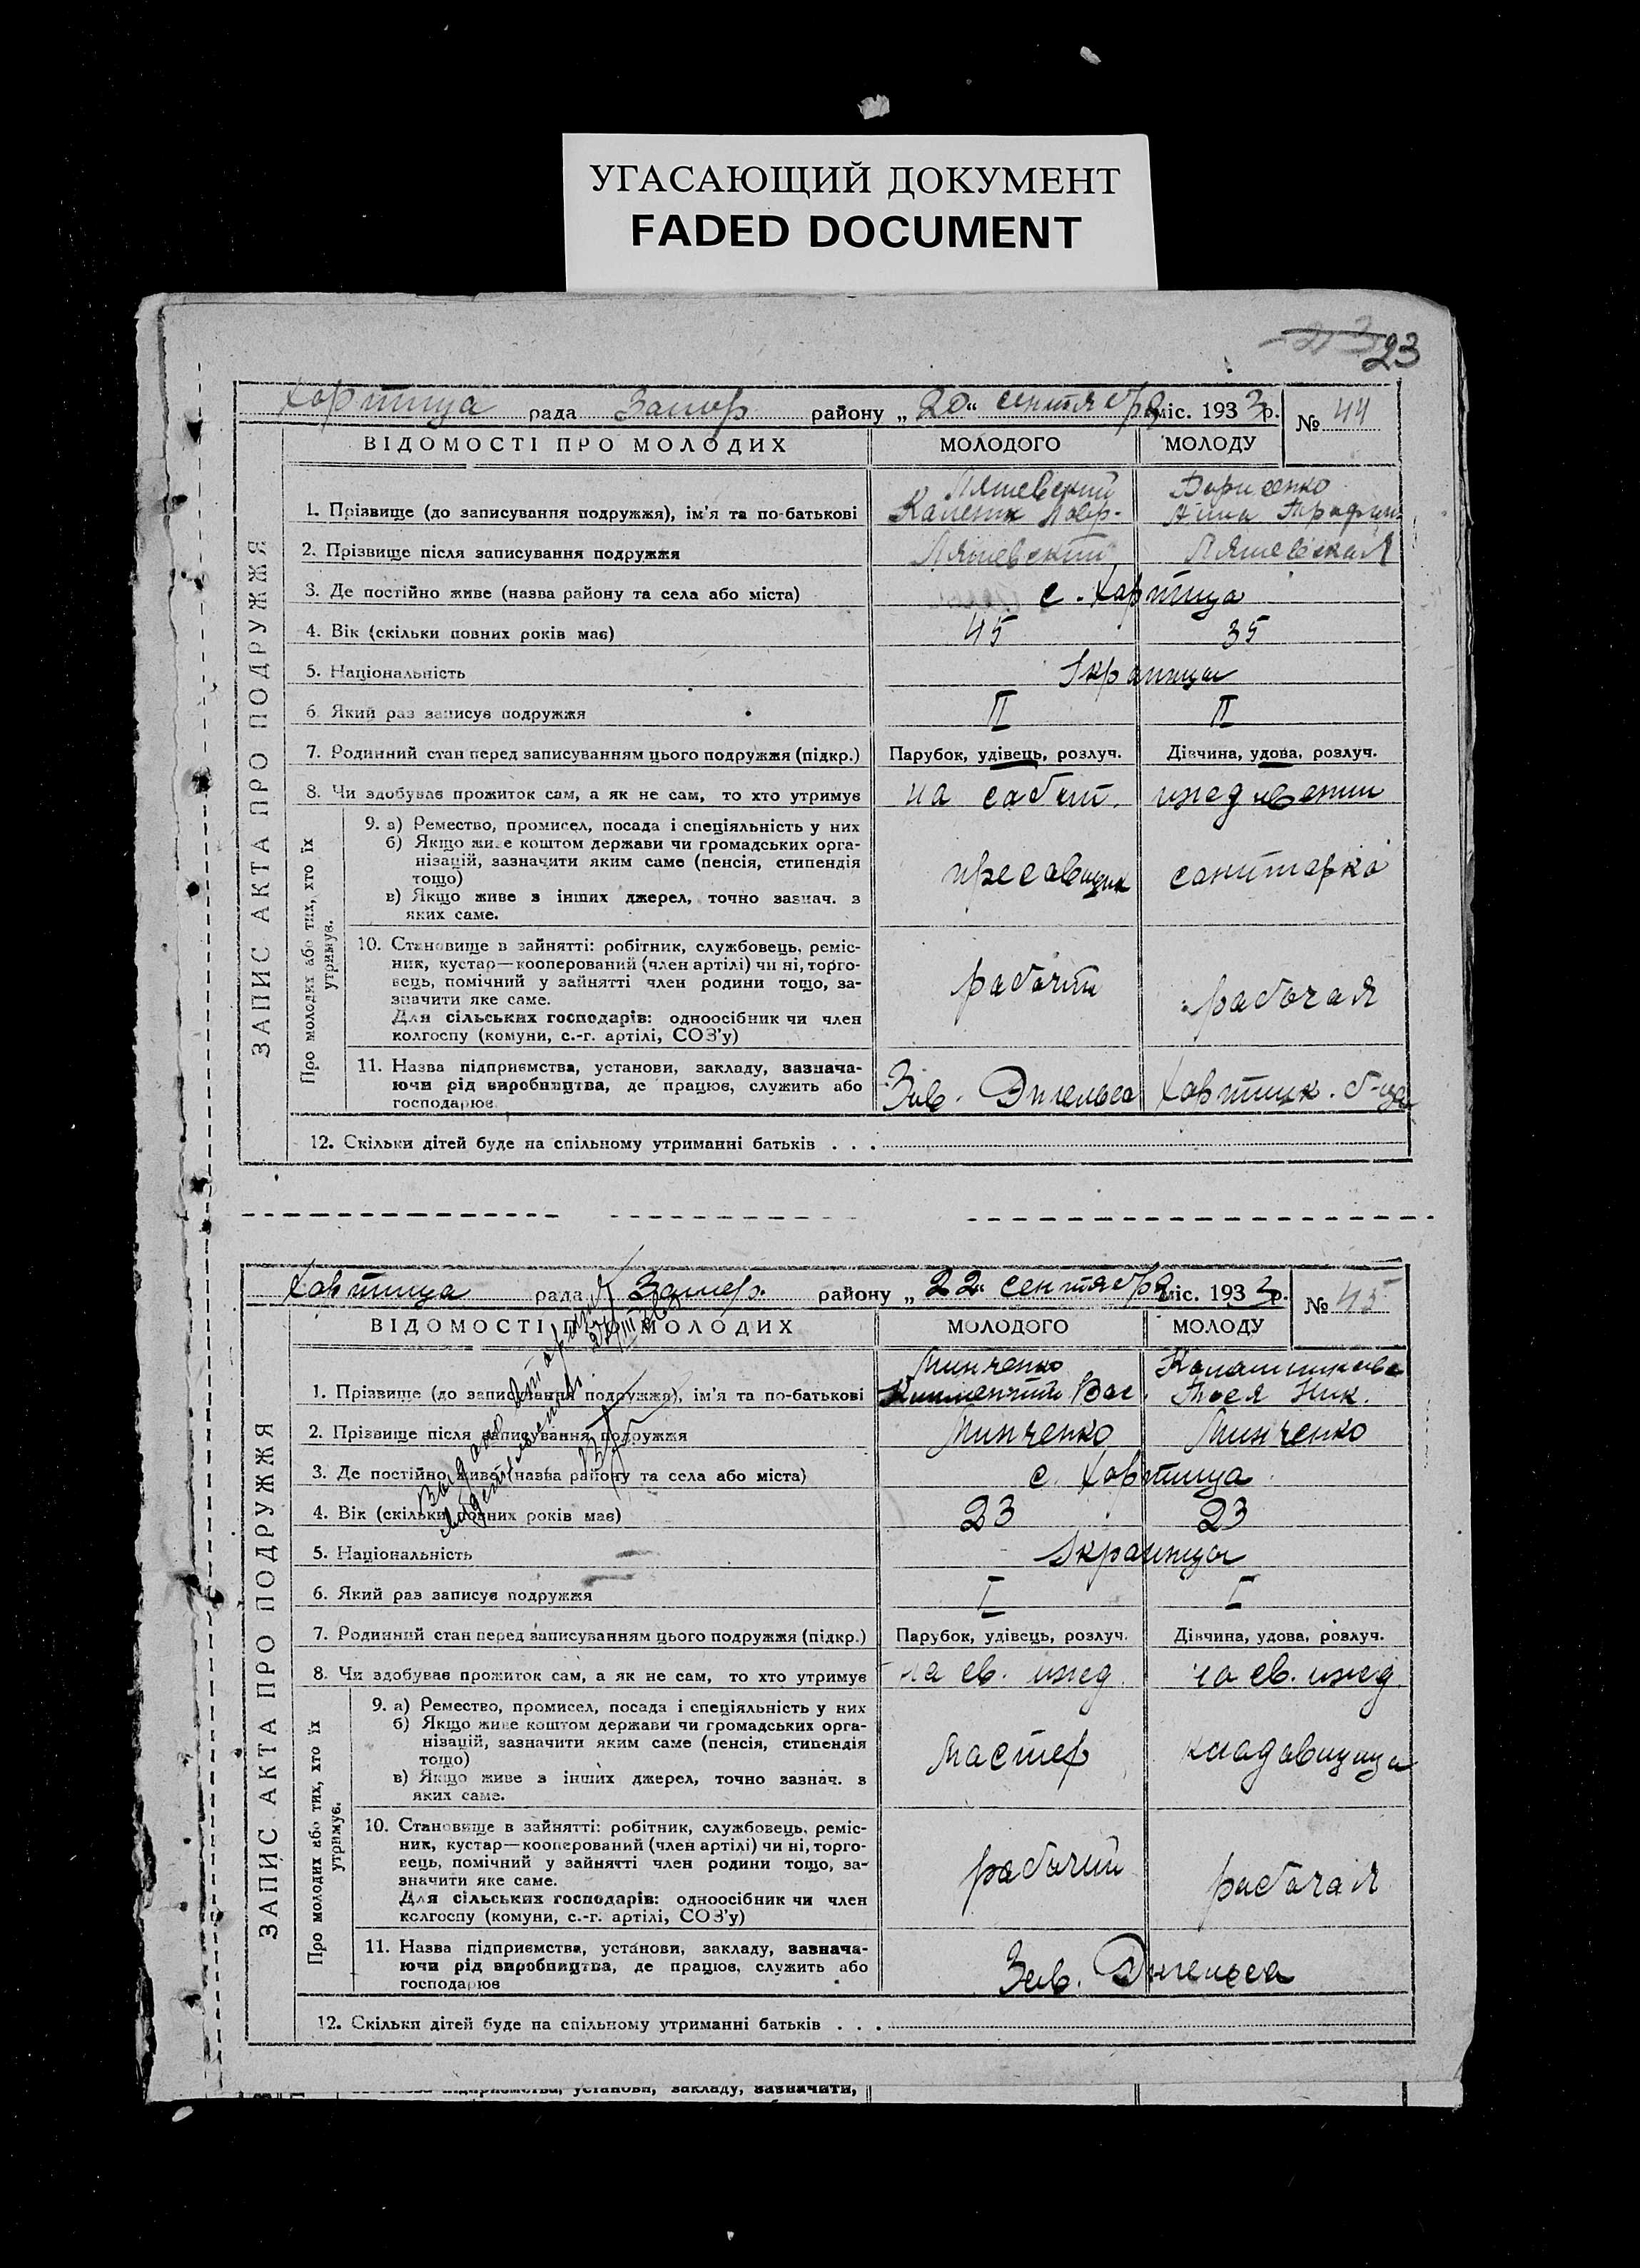 УГАСАЮЩИЙ ДОКУМЕНТ
FADED DOCUMENT
23
Хортица рада Запор. району „20“ сентября міс. 1933р. № 44
ВІДОМОСТІ ПРО МОЛОДИХ МОЛОДОГО МОЛОДУ
ЗАПИС АКТА ПРО ПОДРУЖЖЯ
Ляшевский Борисенко
1. Прізвище (до записування подружжя), ім'я та по-батькові Анна
2. Прізвище після записування подружжя Ляшевский Ляшевская
3. Де постійно живе (назва району та села або міста) с. Хортица
4. Вік (скільки повних років має) 45 35
5. Національність Украинцы
6. Який раз записує подружжя II II
7. Родинний стан перед записуванням цього подружжя (підкр.) Парубок, удівець, розлуч. Дівчина, удова, розлуч.
8. Чи здобуває прожиток сам, а як не сам, то хто утримує на собст. иждивении
Про молодих або тих, хто їх утримує.
9. а) Ремество, промисел, посада і спеціяльність у них
б) Якщо живе коштом держави чи громадських орга-
нізацій, зазначити яким саме (пенсія, стипендія
тощо)
в) Якщо живе з інших джерел, точно зазнач. з
яких саме.
пресовщик санитарка
10. Становище в зайнятті: робітник, службовець, реміс-
ник, кустар—кооперований (член артілі) чи ні, торго-
вець, помічний у зайнятті член родини тощо, за-
значити яке саме.
Для сільських господарів: одноосібник чи член
колгоспу (комуни, с.-г. артілі, СОЗ'у)
рабочий рабочая
11. Назва підприємства, установи, закладу, зазнача-
ючи рід виробництва, де працює, служить або
господарює
Зав. Энгельса Хортиц. б-ца
12. Скільки дітей буде на спільному утриманні батьків . . .
Хортица рада Запор. району „22“ сентября міс. 1933р. № 45
ВІДОМОСТІ ПРО МОЛОДИХ МОЛОДОГО МОЛОДУ
ЗАПИС АКТА ПРО ПОДРУЖЖЯ
Минченко
1. Прізвище (до записування подружжя), ім'я та по-батькові Вас. Ник.
2. Прізвище після записування подружжя Минченко Минченко
3. Де постійно живе (назва району та села або міста) с. Хортица
4. Вік (скільки повних років має) 23 23
5. Національність Украинцы
6. Який раз записує подружжя I I
7. Родинний стан перед записуванням цього подружжя (підкр.) Парубок, удівець, розлуч. Дівчина, удова, розлуч.
8. Чи здобуває прожиток сам, а як не сам, то хто утримує на св. ижд. на св. ижд.
Про молодих або тих, хто їх утримує.
9. а) Ремество, промисел, посада і спеціяльність у них
б) Якщо живе коштом держави чи громадських орга-
нізацій, зазначити яким саме (пенсія, стипендія
тощо)
в) Якщо живе з інших джерел, точно зазнач. з
яких саме.
мастер кладовщица
10. Становище в зайнятті: робітник, службовець, реміс-
ник, кустар—кооперований (член артілі) чи ні, торго-
вець, помічний у зайнятті член родини тощо, за-
значити яке саме.
Для сільських господарів: одноосібник чи член
колгоспу (комуни, с.-г. артілі, СОЗ'у)
рабочий рабочая
11. Назва підприємства, установи, закладу, зазнача-
ючи рід виробництва, де працює, служить або
господарює
Зав. Энгельса
12. Скільки дітей буде на спільному утриманні батьків . . .
установи, закладу, зазначити,